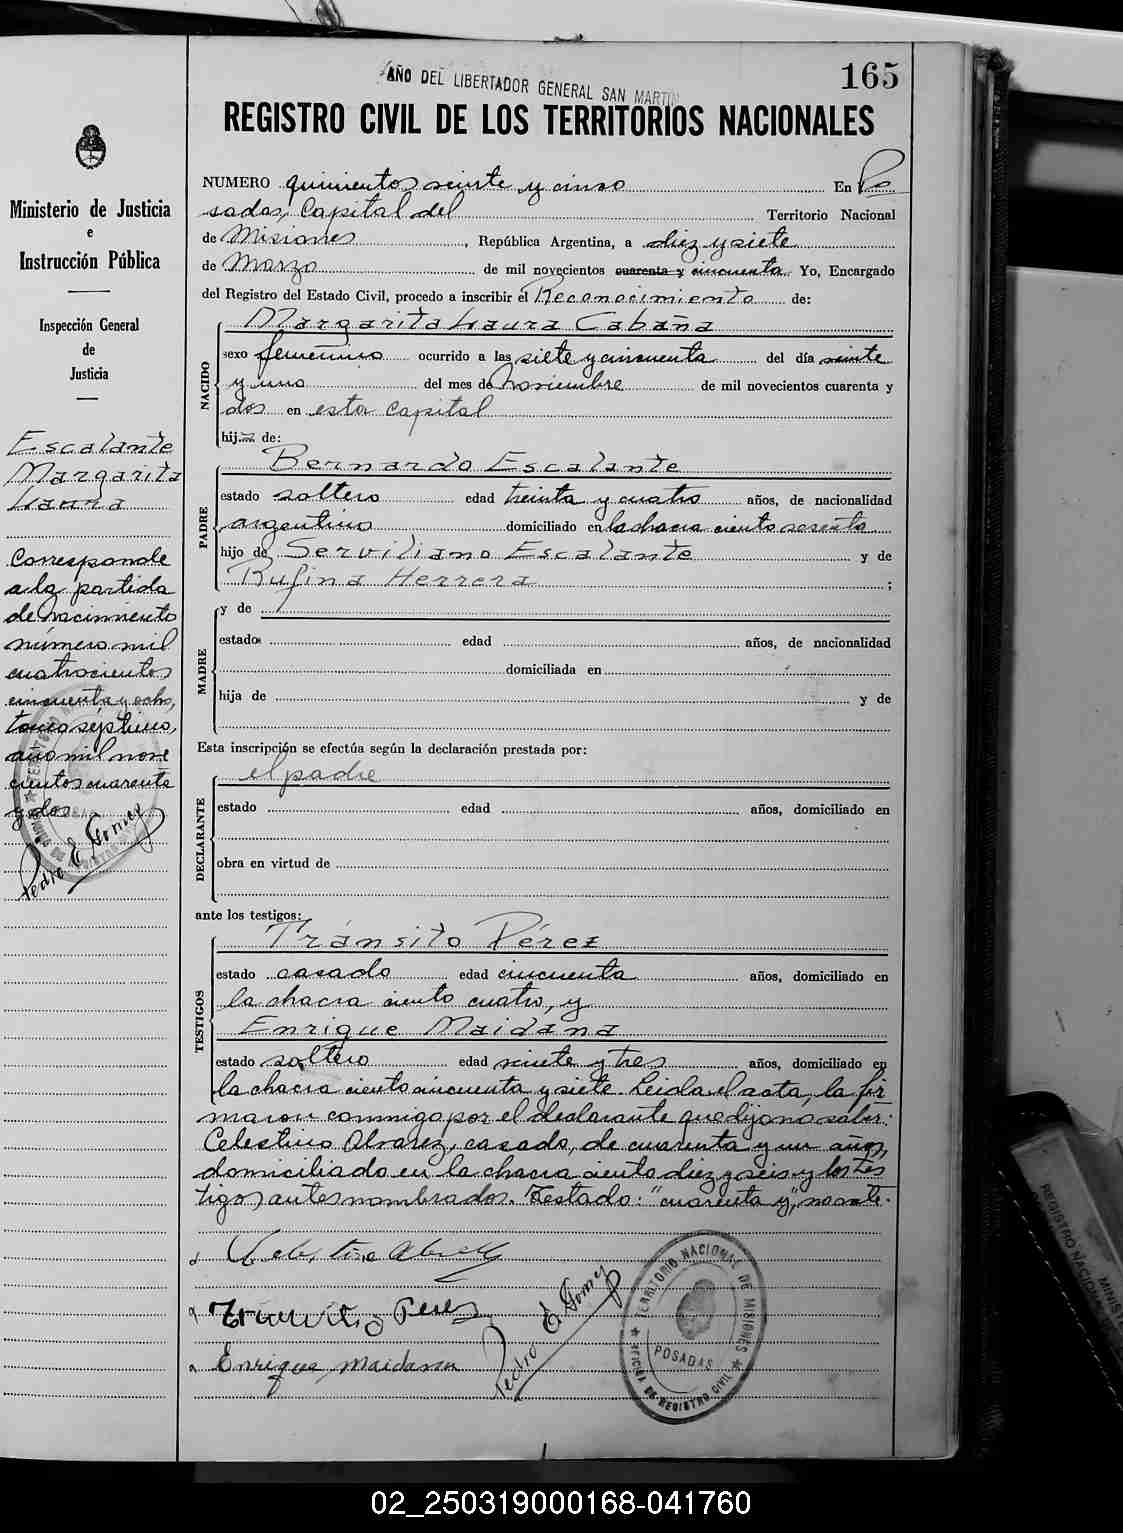 165
AÑO DEL LIBERTADOR GENERAL SAN MARTIN
REGISTRO CIVIL DE LOS TERRITORIOS NACIONALES
Ministerio de Justicia
e
Instrucción Pública
Inspección General
de
Justicia
Escalante
Margarita
Laura
Corresponde
a la partida
de nacimiento
número mil
cuatrocientos
cincuenta y ocho,
tomo séptimo,
año mil nove
cientos cuarenta
y dos
Pedro E Gomez
NUMERO quinientos veinte y cinco En Po
sadas, Capital del Territorio Nacional
de Misiones, República Argentina, a diez y siete
de Marzo de mil novecientos cuarenta y cincuenta Yo, Encargado
del Registro del Estado Civil, procedo a inscribir el Reconocimiento de:
NACIDO
Margarita Laura Cabaña
sexo femenino ocurrido a las siete y cincuenta del día veinte
y uno del mes de Noviembre de mil novecientos cuarenta y
dos en esta Capital
hij de:
PADRE
Bernardo Escalante
estado soltero edad treinta y cuatro años, de nacionalidad
argentino domiciliado en la chacra ciento sesenta
hijo de Serviliano Escalante y de
Rufina Herrera ;
MADRE
y de
estado edad años, de nacionalidad
domiciliada en
hija de y de
Esta inscripción se efectúa según la declaración prestada por:
DECLARANTE
el padre
estado edad años, domiciliado en
obra en virtud de
ante los testigos:
TESTIGOS
Tránsito Pérez
estado casado edad cincuenta años, domiciliado en
la chacra ciento cuatro, y
Enrique Maidana
estado soltero edad veinte y tres años, domiciliado en
la chacra ciento cincuenta y siete. Leida el acta, la fir
maron conmigo por el declarante que dijo no saber:
Celestino Alvarez, casado, de cuarenta y un años,
domiciliado en la chacra ciento diez y seis y los tes
tigos antes nombrados. Testado: "cuarenta y", no vale.
Celestino Alvarez
Transito Perez
Enrique Maidana
Pedro E Gomez
TERRITORIO NACIONAL DE MISIONES
POSADAS
OFICINA DE REGISTRO CIVIL
REGISTRO
MINISTE
02_250319000168-041760